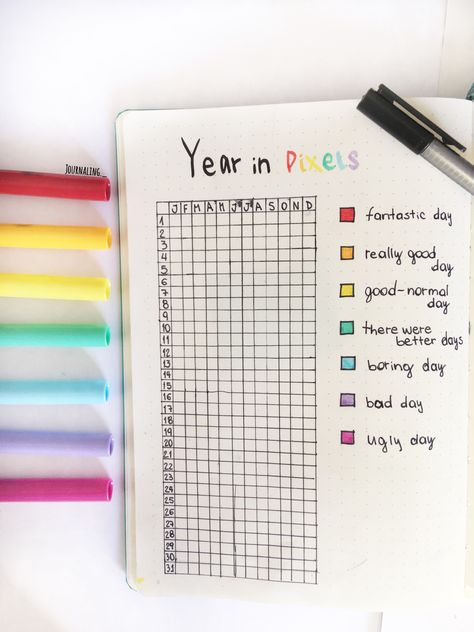 JOURNALING__
Year in Pixels
J F M A M J J A S O N D
1
2
3
4
5
6
7
8
9
10
11
12
13
14
15
16
17
18
19
20
21
22
23
24
25
26
27
28
29
30
31
fantastic day
really good
day
good-normal
day
there were
better days
boring day
bad day
ugly day